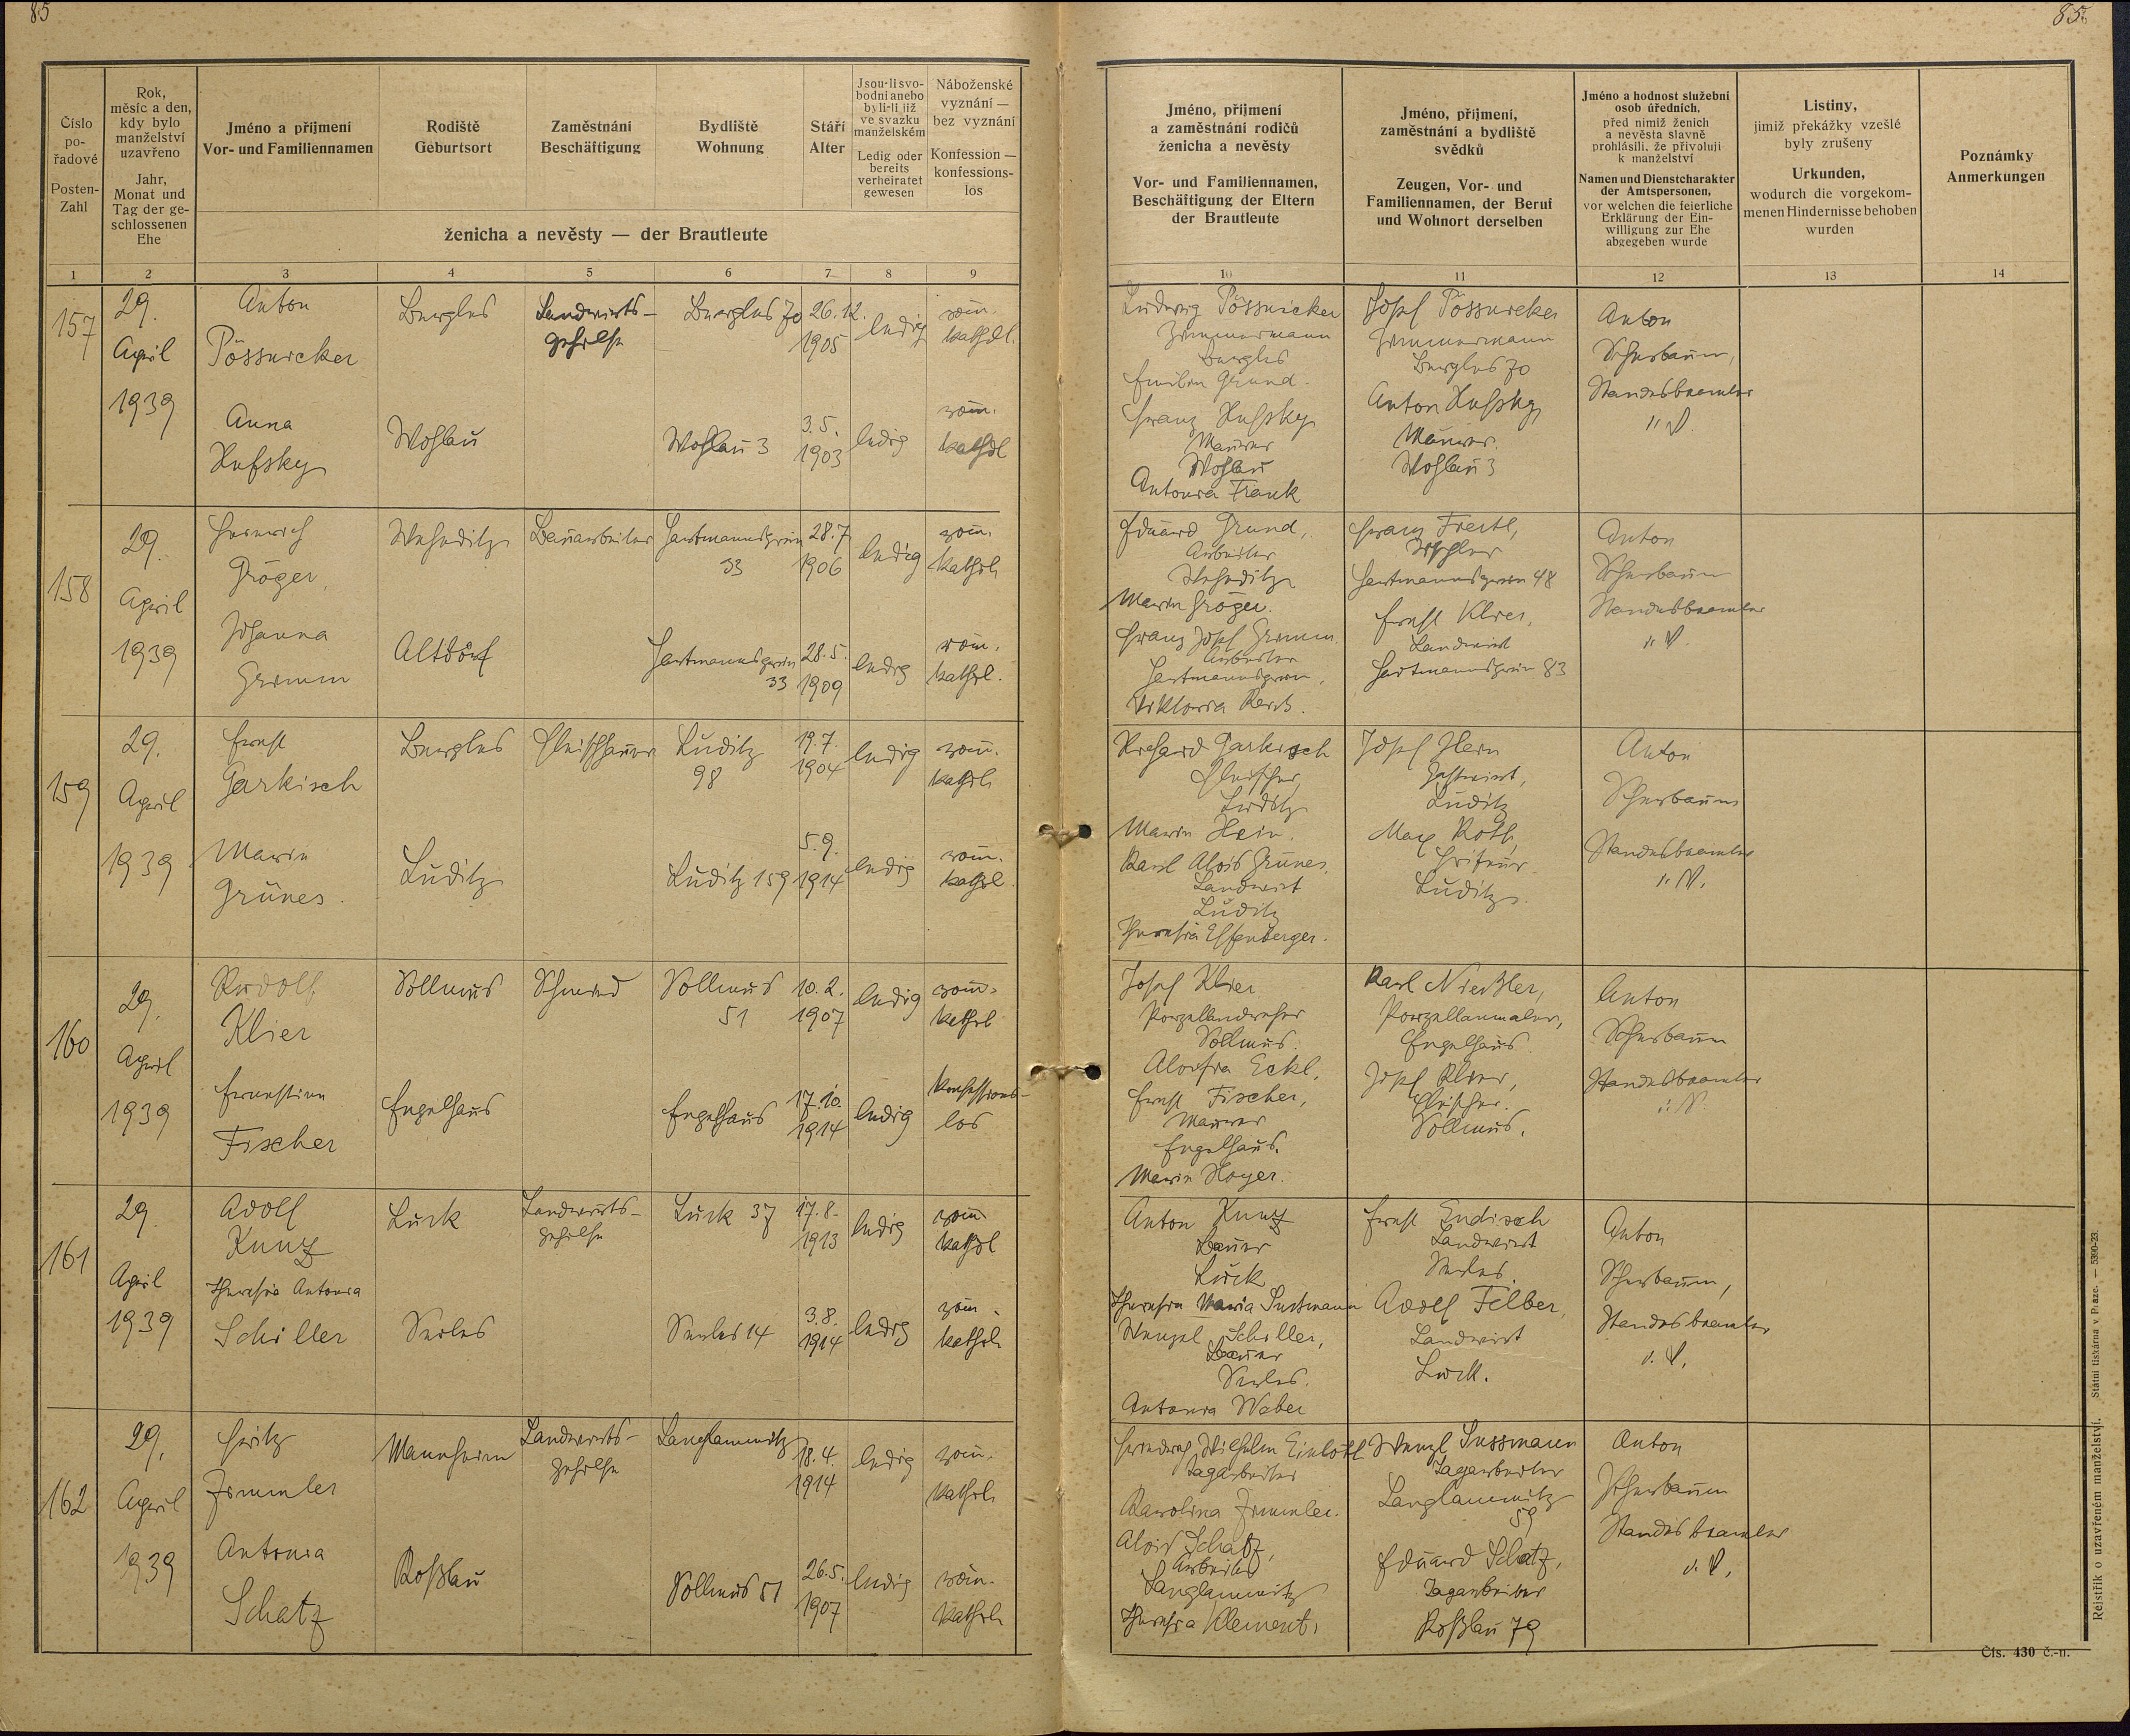 85
85.
Číslo
po-
řadové
Posten-
Zahl
Rok,
měsíc a den,
kdy bylo
manželství
uzavřeno
Jahr,
Monat und
Tag der ge-
schlossenen
Ehe
Jméno a přijmení
Vor- und Familiennamen
Rodiště
Geburtsort
Zaměstnání
Beschäftigung
Bydliště
Wohnung
Stáří
Alter
Jsou-li svo-
bodni anebo
byli-li již
ve svazku
manželském
Ledig oder
bereits
verheiratet
gewesen
Náboženské
vyznání —
bez vyznání
Konfession —
konfessions-
los
ženicha a nevěsty — der Brautleute
Jméno, přijmení
a zaměstnání rodičů
ženicha a nevěsty
Vor- und Familiennamen,
Beschäftigung der Eltern
der Brautleute
Jméno, přijmení,
zaměstnání a bydliště
svědků
Zeugen, Vor- und
Familiennamen, der Beruf
und Wohnort derselben
Jméno a hodnost služební
osob úředních,
před nimiž ženich
a nevěsta slavně
prohlásili, že přivolují
k manželství
Namen und Dienstcharakter
der Amtspersonen,
vor welchen die feierliche
Erklärung der Ein-
willigung zur Ehe
abgegeben wurde
Listiny,
jimiž překážky vzešlé
byly zrušeny
Urkunden,
wodurch die vorgekom-
menen Hindernisse behoben
wurden
Poznámky
Anmerkungen
1 2 3 4 5 6 7 8 9 10 11 12 13 14
157
29.
April
1939
Anton
Pössnicker
Bergles
Landwirts-
gehilfe
Bergles 70
26.12.
1905
ledig
röm.
kathol.
Anna
Hufsky
Wohlau
Wohlau 3
3.5.
1903
ledig
röm.
kathol
Ludwig Pössnicker
Zimmermann
Bergles
Emilia Grund.
Franz Hufsky
Maurer
Wohlau
Antonia Frank
Josef Pössnicker
Zimmermann
Bergles 70
Anton Hufsky,
Maurer.
Wohlau 3
Anton
Scherbaum,
Standesbeamter
158
29.
April
1939
Heinrich
Gröger,
Weheditz
Bauarbeiter
Hartmannsgrün
33
28.7
1906
ledig
röm.
kathol.
Johanna
Grimm
Altdorf
Hartmannsgrün
33
28.5.
1909
ledig
röm.
kathol.
Eduard Grund,
Arbeiter
Weheditz
Maria Gröger.
Franz Josef Grimm.
Arbeiter
Hartmannsgrün,
Viktoria
Franz
Tischler
Hartmannsgrün 48
Ernst Klier,
Landwirt
Hartmannsgrün 83
Anton
Scherbaum
Standesbeamter
159
29.
April
1939
Ernst
Garkisch
Bergles
Fleischhauer
Luditz
98
19.7.
1904
ledig
röm.
kathol.
Maria
Grünes.
Luditz
Luditz 159
5.9.
1914
ledig
röm.
kathol.
Richard Garkisch
Fleischer,
Luditz
Maria Hein.
Karl Alois Grünes,
Landwirt
Luditz
Theresia Elfenberger.
Josef Hein
Gastwirt,
Luditz
Max Roth,
Friseur
Luditz.
Anton
Scherbaum
Standesbeamter
160
29.
April
1939
Rudolf
Klier
Sollmus
Schmied
Sollmus
51
10.2.
1907
ledig
röm.
kathol
Ernestine
Fischer
Engelhaus
Engelhaus
17.10.
1914
ledig
Konfessions-
los
Josef Klier
Porzellandreher
Sollmus.
Aloisia Eckl,
Ernst Fischer,
Maurer
Engelhaus.
Maria Hoyer.
Karl Nießler,
Porzellanmaler,
Engelhaus
Josef Klier,
Fleischer.
Sollmus.
Anton
Scherbaum
Standesbeamter
161
29.
April
1939
Adolf
Kunz
Luck
Landwirts-
gehilfe
Luck 37
17.8.
1913
ledig
röm
kathol
Theresia Antonia
Schiller
Serles
Serles 14
3.8.
1914
ledig
röm.
kathol.
Anton Kunz
Bauer
Luck
Theresia Maria
Wenzel Schiller,
Bauer
Serles.
Antonia Weber
Ernst Endisch
Landwirt
Serles.
Adolf Felber,
Landwirt
Luck.
Anton
Scherbaum,
Standesbeamter
162
29.
April
1939
Fritz
Zimmler
Mannheim
Landwirts-
gehilfe
Langlammitz
18.4.
1914
ledig
röm.
kathol.
Antonia
Schatz
Roßlau
Sollmus 51
26.5.
1907
ledig
röm.
kathol.
Wilhelm
Tagarbeiter
Karolina Zimmler.
Alois Schatz,
Arbeiter
Langlammitz
Theresia Klement.
Wenzl Sussmann
Tagarbeiter
Langlammitz
59
Eduard Schatz,
Tagarbeiter
Roßlau 79
Anton
Scherbaum
Standesbeamter
Rejstřík o uzavřeném manželství. Státní tiskárna v Praze. — 5390-23.
Čís. 430 č.-n.